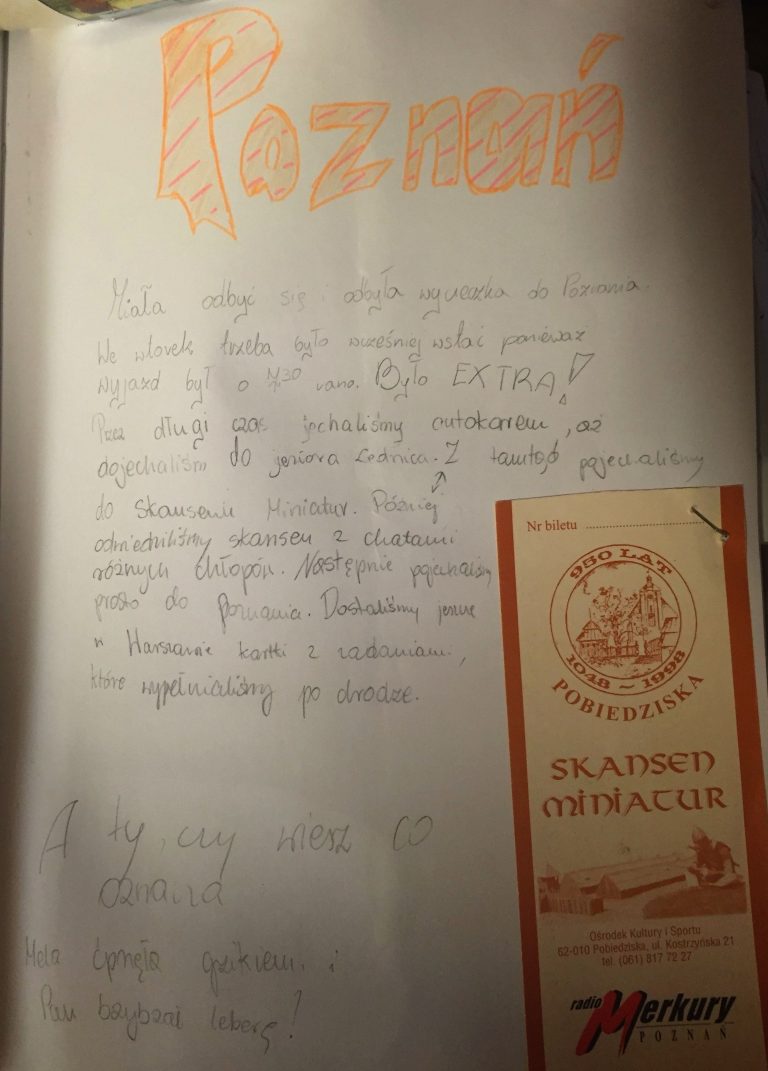 Poznań
Miała odbyć się i odbyła wycieczka do Poznania.
We wtorek trzeba było wcześniej wstać ponieważ
wyjazd był o 30 rano. Było EXTRA!
Przez długi czas jechaliśmy autokarem, aż
dojechaliśm do jeziora Lednica. Z tamtąd pojechaliśmy
do Skansenu Miniatur. Później
odwiedziliśmy skansen z chatami
różnych chłopów. Następnie pojechaliśmy
prosto do Poznania. Dostaliśmy jeszcze
w Warszawie kartki z zadaniami,
które wypełnialiśmy po drodze.
A ty, czy wiesz co
oznacza
Hela ćpnęła gzikiem i
Pan bzybzał leberę!
Nr biletu
950 LAT
1048 ~ 1998
POBIEDZISKA
SKANSEN
MINIATUR
Ośrodek Kultury i Sportu
62-010 Pobiedziska, ul. Kostrzyńska 21
tel. (061) 817 72 27
radio Merkury
POZNAŃ